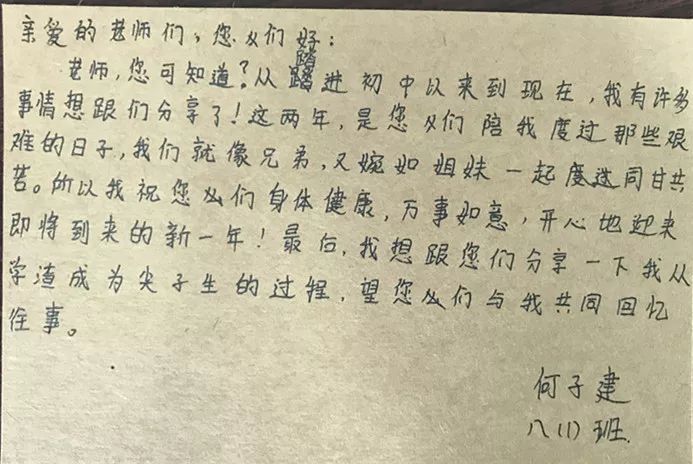 亲爱的老师们，您们好：
老师，您可知道？从踏进初中以来到现在，我有许多
事情想跟们分享了！这两年，是您们陪我度过那些艰
难的日子，我们就像兄弟，又婉如姐妹一起度过同甘共
苦。所以我祝您们身体健康，万事如意，开心地迎来
即将到来的新一年！最后，我想跟您们分享一下我从
学渣成为尖子生的过程，望您们与我共同回忆
往事。
何子建
八(1)班